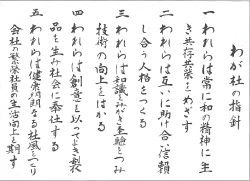 わが社の指針
一 われらは常に和の精神に生
き共存共栄をめざす
二 われらは互いに助け合い信頼
し合う人格をつくる
三 われらは知識をみがき経験をつみ
技術の向上をはかる
四 われらは創意を以ってよき製
品を生み社会に奉仕する
五 われらは健康明朗なる社風をつくり
会社の繁栄社員の生活向上を期す